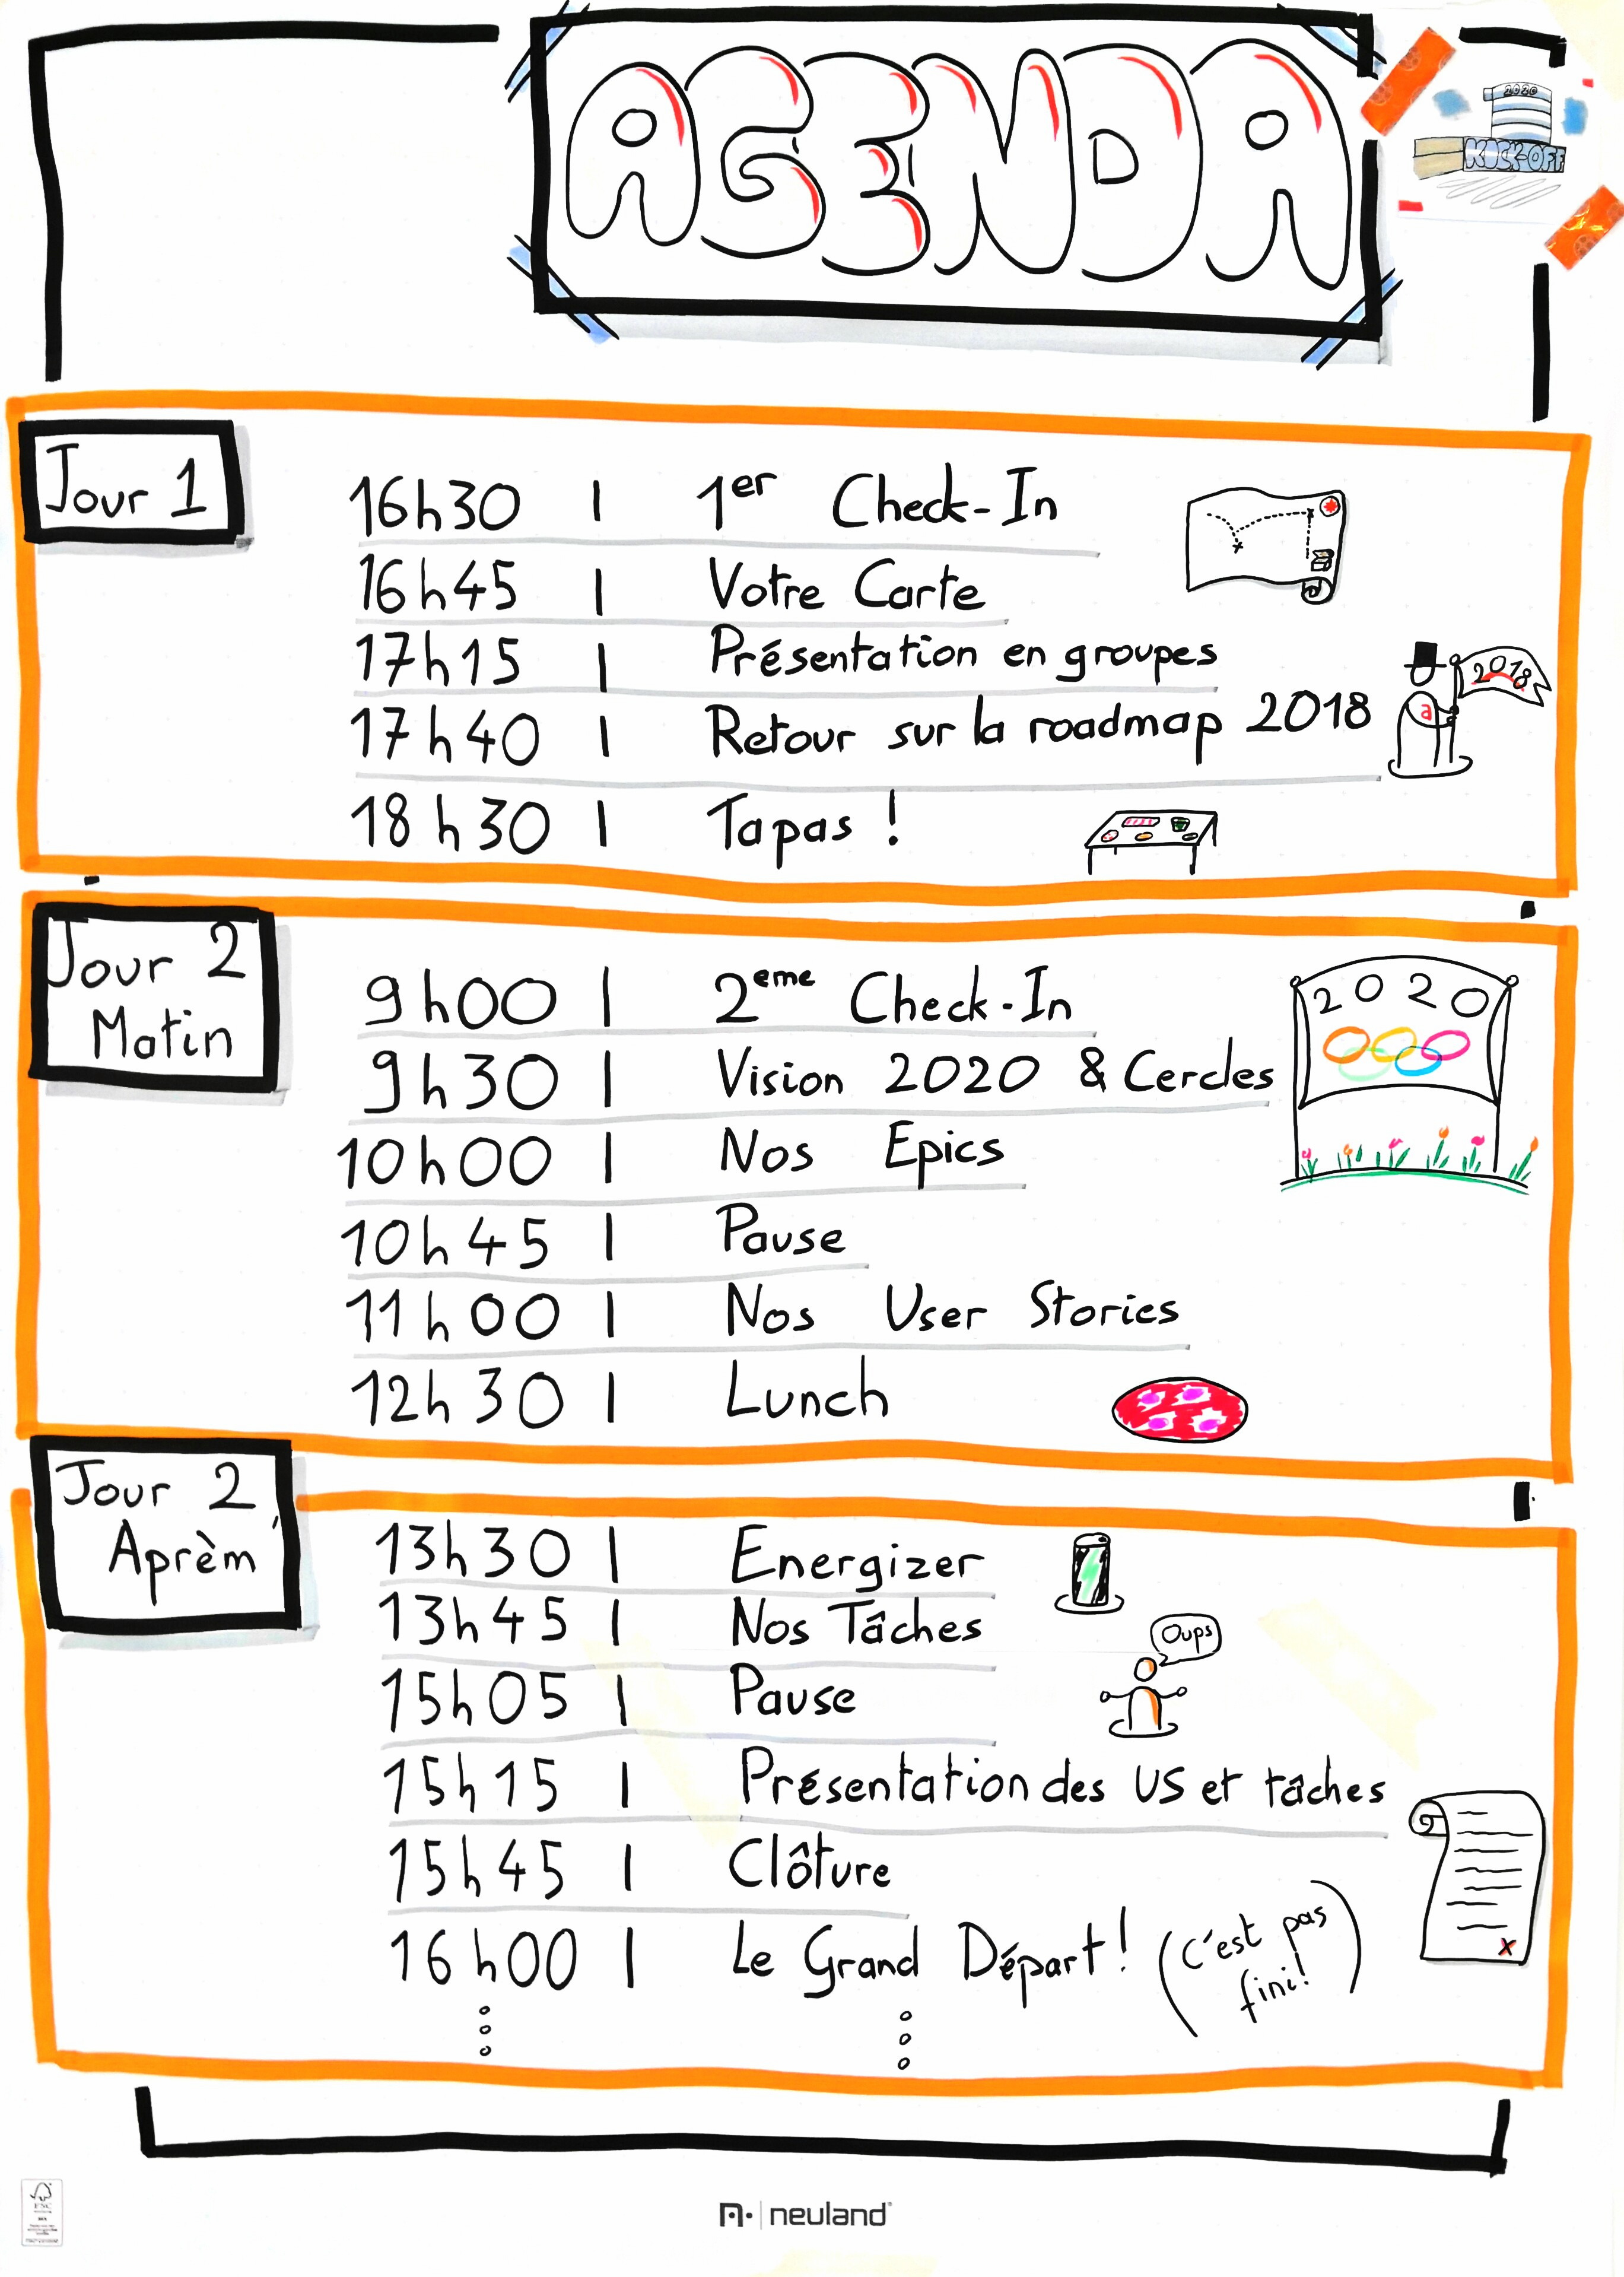 AGENDA
2020
KICK-OFF
Jour 1
16h30 | 1er Check-In
16h45 | Votre Carte
17h15 | Présentation en groupes
17h40 | Retour sur la roadmap 2018
2018
a
18h30 | Tapas !
Jour 2
Matin
9h00 | 2eme Check-In
2020
9h30 | Vision 2020 & Cercles
10h00 | Nos Epics
10h45 | Pause
11h00 | Nos User Stories
12h30 | Lunch
Jour 2
Aprèm'
13h30 | Energizer
13h45 | Nos Tâches
Oups
15h05 | Pause
15h15 | Présentation des US et tâches
15h45 | Clôture
16h00 | Le Grand Départ ! (c'est pas
fini!)
FSC
neuland